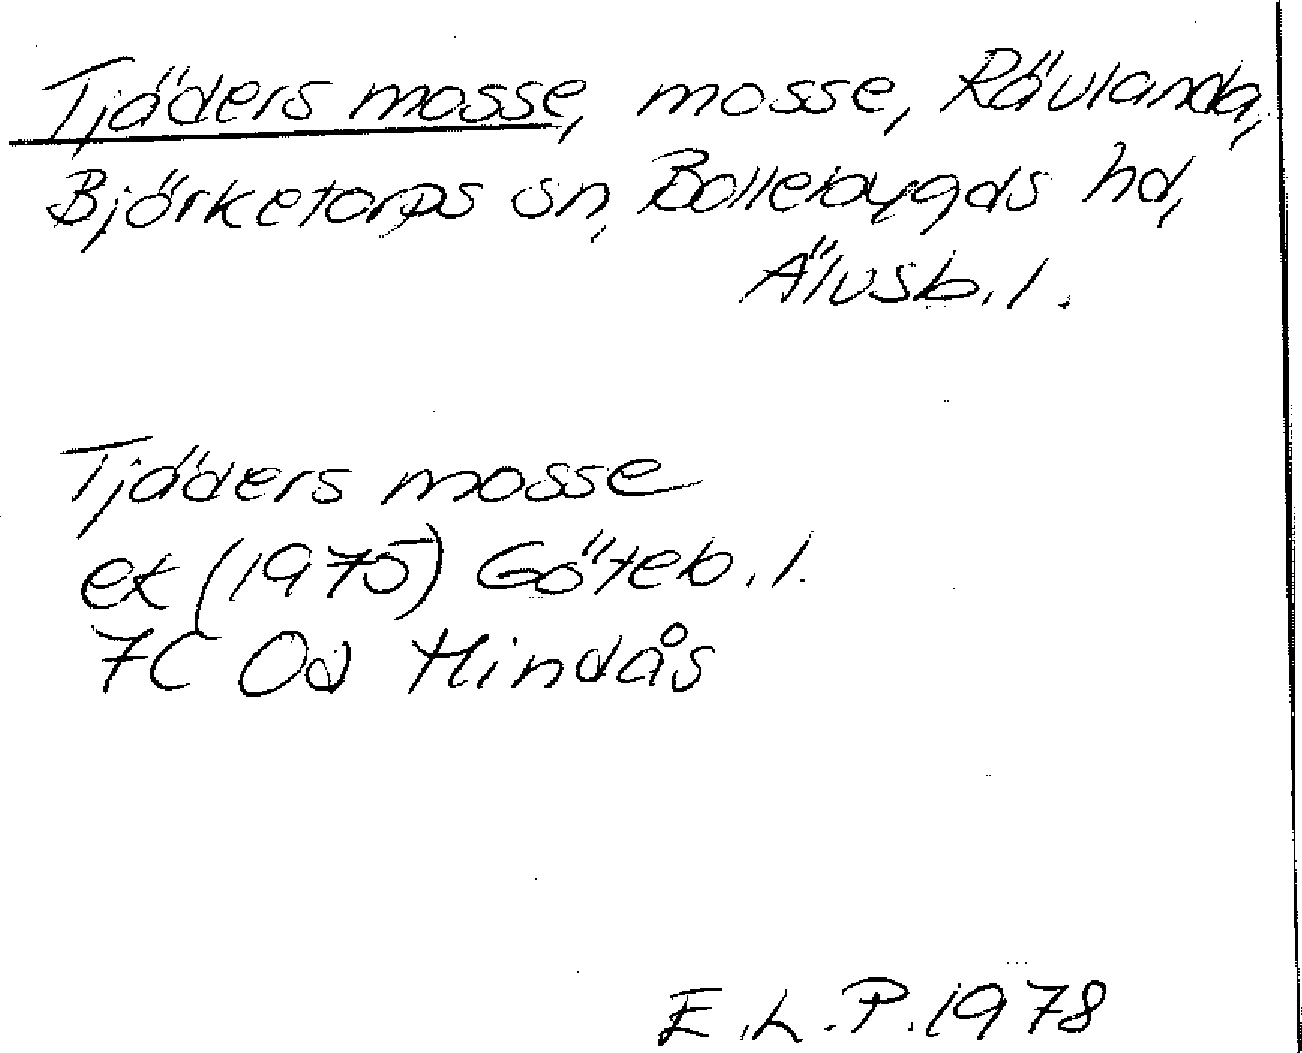 Tjäders mosse, mosse, Rävlanda,
Björketorps sn, Bollebygds hd,
Älvsb. l.
Tjäders mosse
ek (1975) Göteb. l.
7C 0d Hindås
E.L.P. 1978